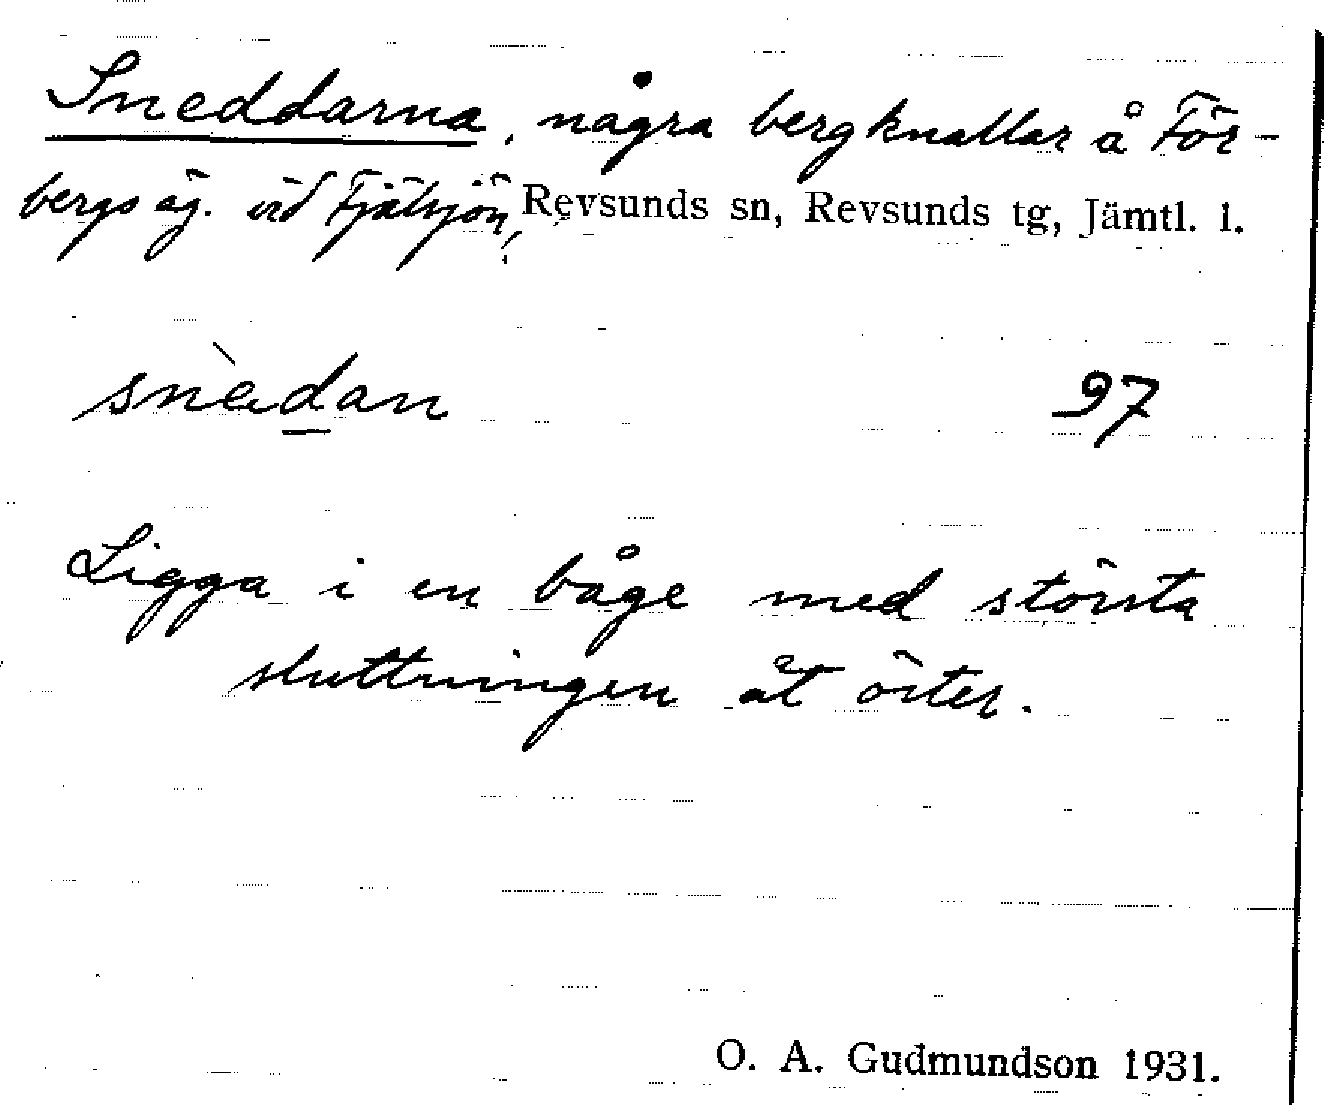 Sneddarna, några bergknallar å För-
bergs äg. vid Fjälsjön, Revsunds sn, Revsunds tg, Jämtl. l.
97
Ligga i en båge med största
sluttningen åt öster.
O. A. Gudmundson 1931.